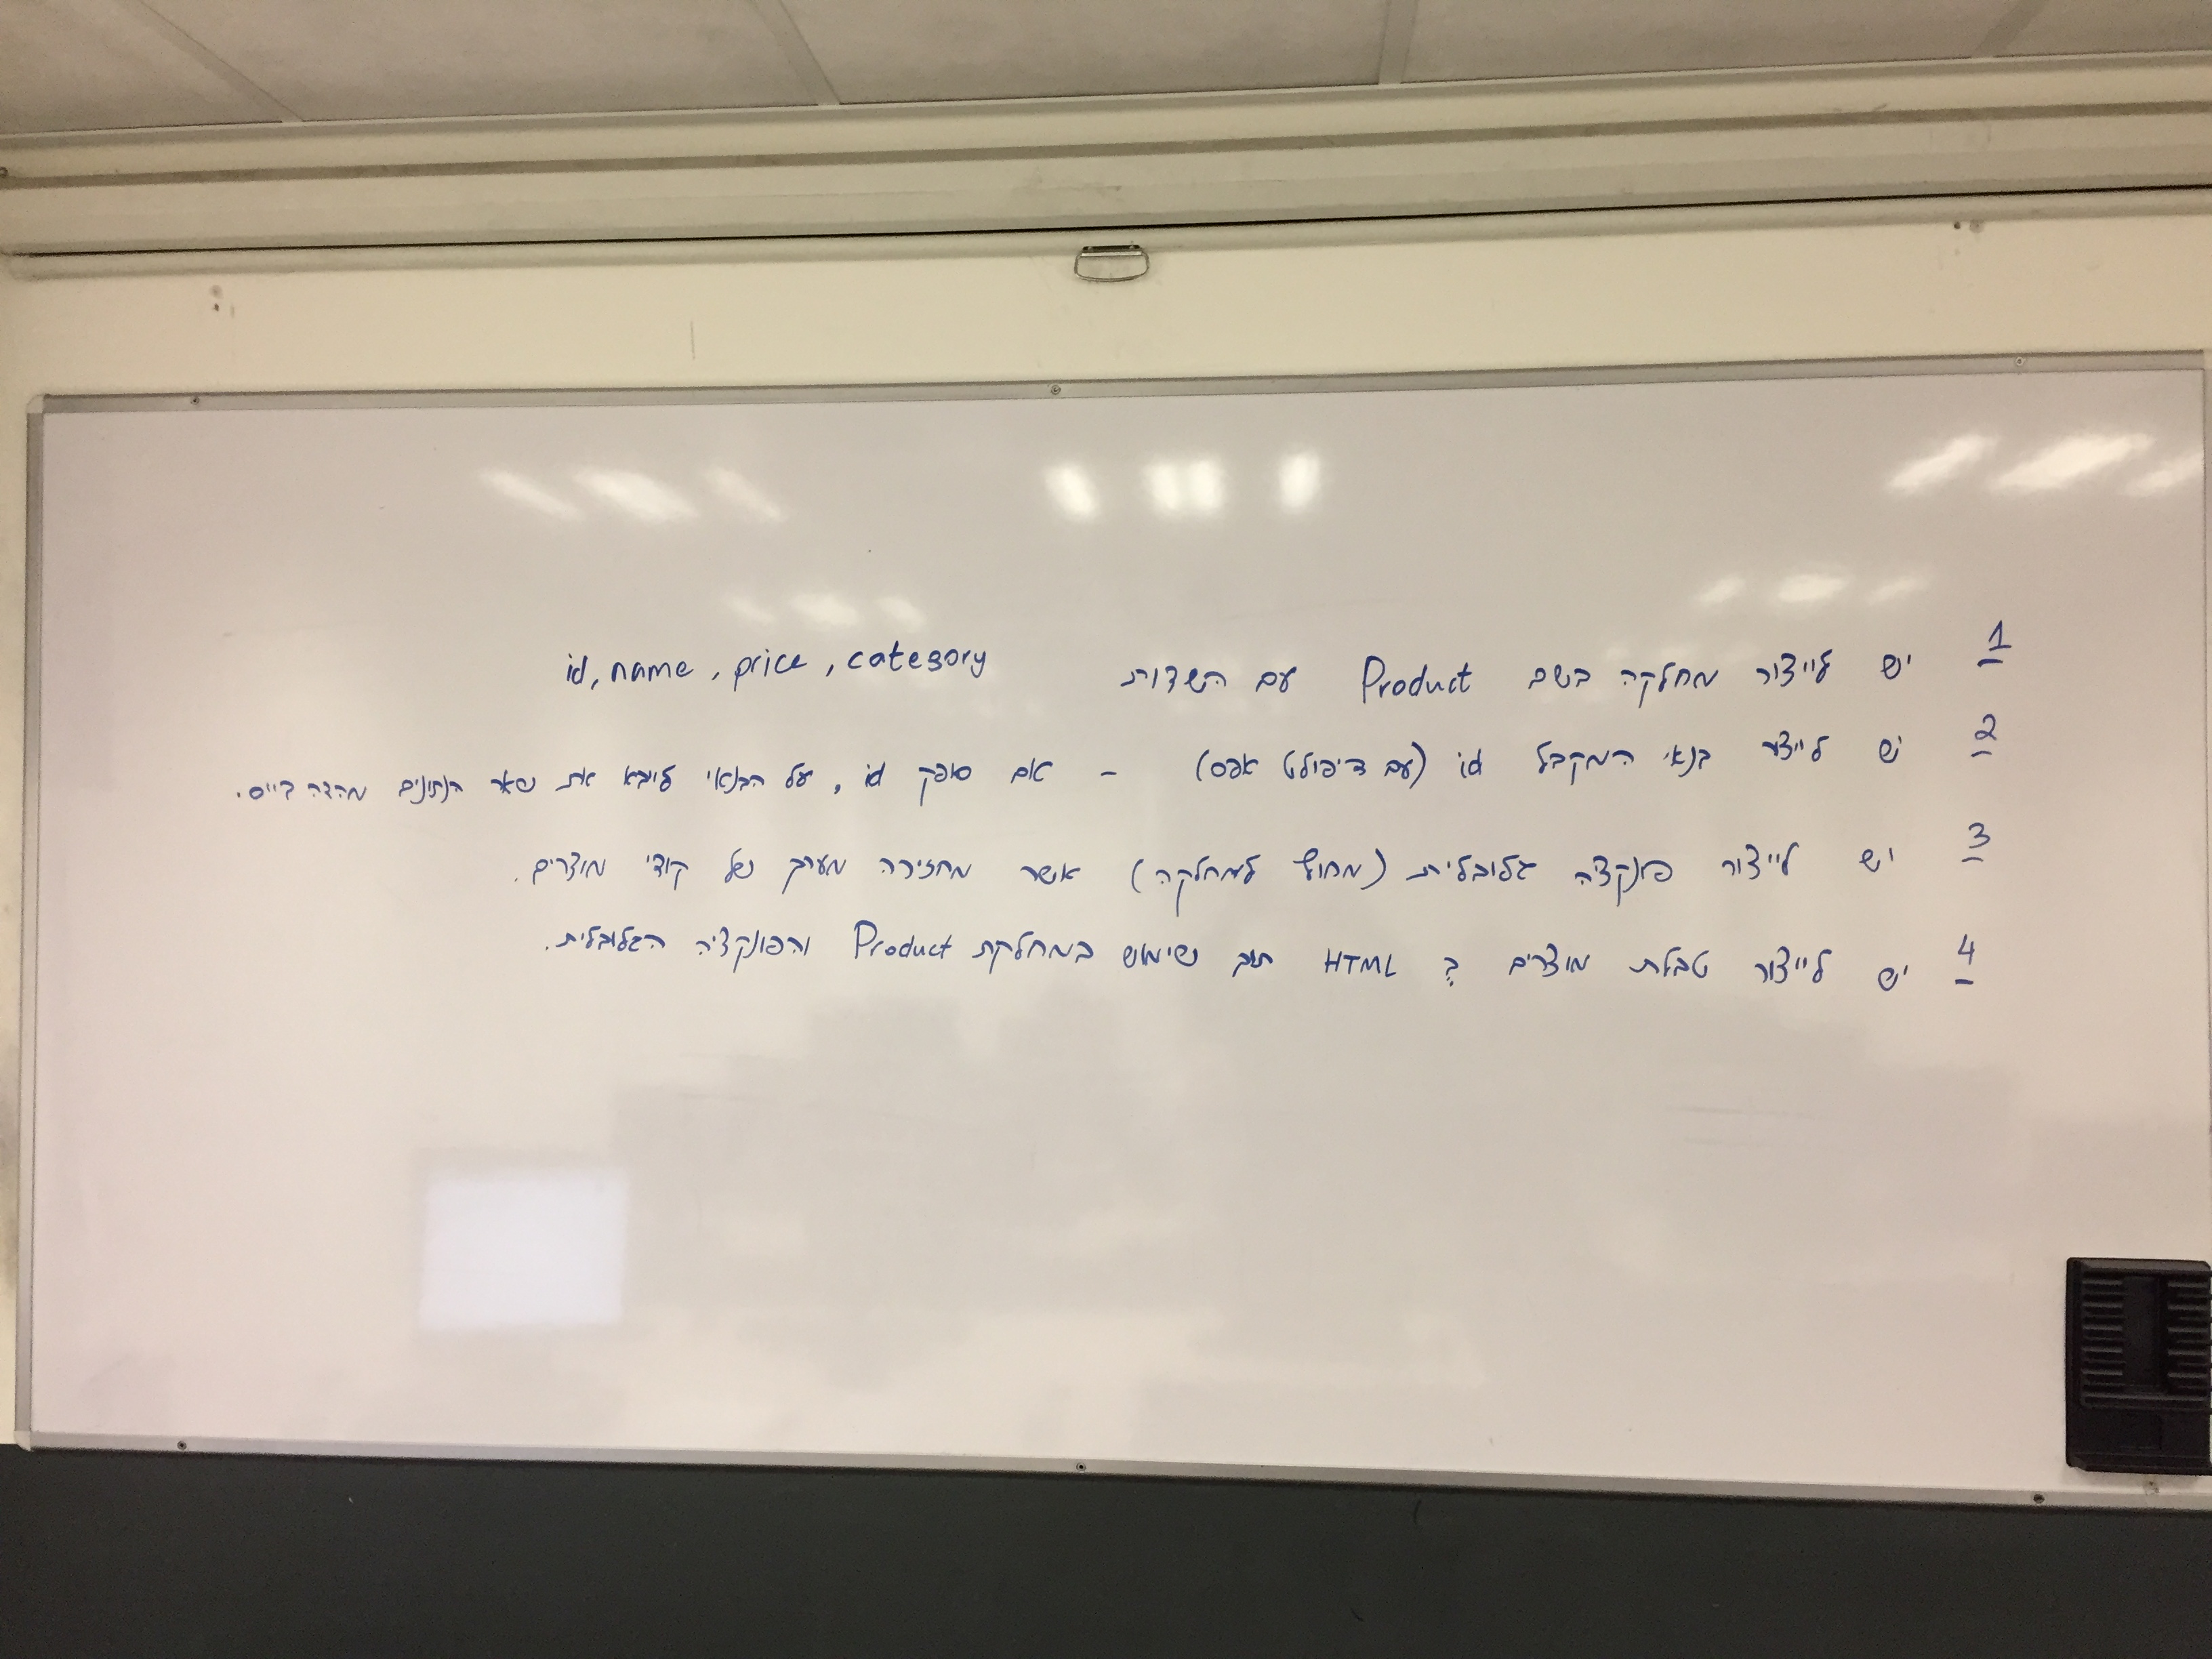 1 יש לייצור מחלקה בשם Product עם השדות id, name, price, category
2 יש לייצר בנאי המקבל id (עם דיפולט אפס) - אם סופק id, על הבנאי לייבא את שאר הנתונים מהדה בייס.
3 יש לייצור פונקציה גלובלית (מחוץ למחלקה) אשר מחזירה מערך של קודי מוצרים.
4 יש לייצור טבלת מוצרים ב HTML תוך שימוש במחלקת Product והפונקציה הגלובלית.